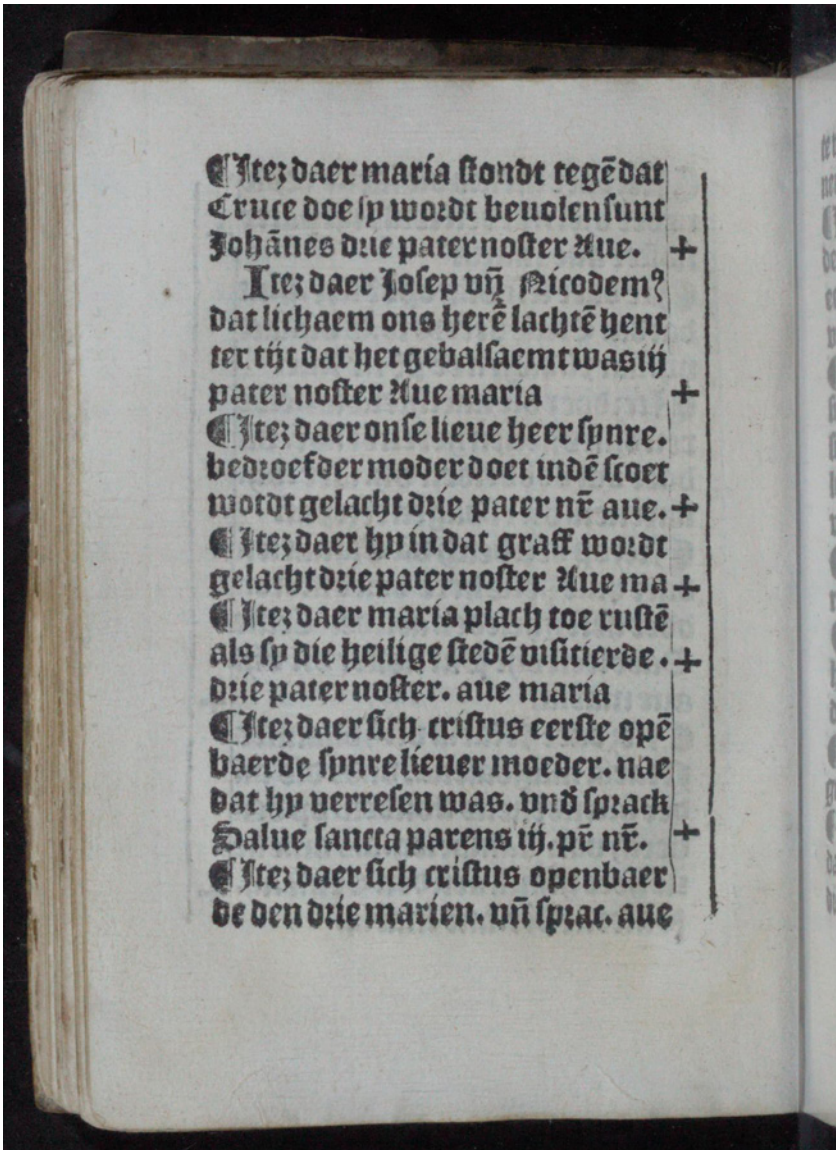 ¶ Itez daer maria stondt tegē dat
Cruce doe sy wordt beuolen sunt
Johānes drie pater noster Aue. +
Itez daer Josep vñ Nicodemꝰ
dat lichaem ons herē lachtē hent
ter tijt dat het gebalsaemt was iij
pater noster Aue maria +
¶ Itez daer onse lieue heer synre.
bedroefder moder doet indē scoet
wordt gelacht drie pater nr̄ aue. +
¶ Itez daer hy in dat graff wordt
gelacht drie pater noster Aue ma +
¶ Itez daer maria plach toe rustē
als sy die heilige stedē visitierde. +
drie pater noster. aue maria
¶ Itez daer sich cristus eerste opē
baerde synre lieuer moeder. nae
dat hy verresen was. vnd̄ sprack
Salue sancta parens iij. pr̄ nr̄. +
¶ Itez daer sich cristus openbaer
de den drie marien. vñ sprac. aue